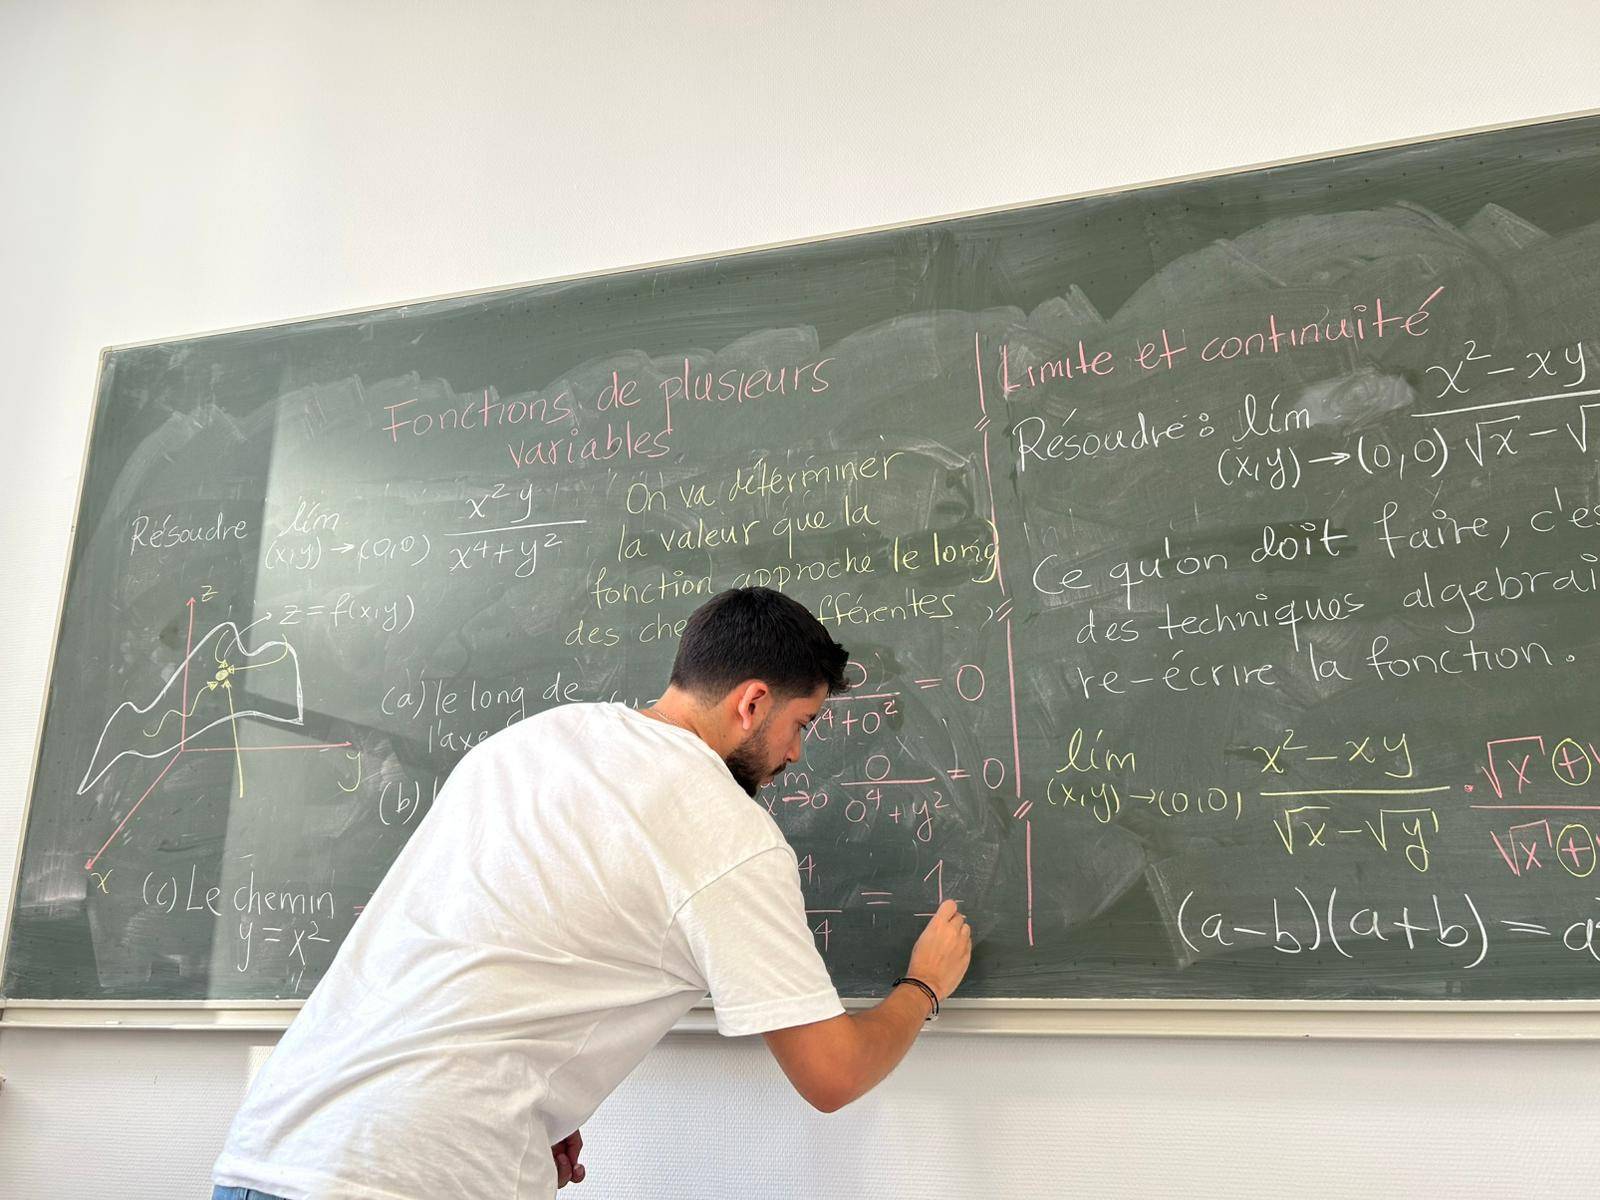 Fonctions de plusieurs
variables
Résoudre lím x²y
(x,y)→(0,0) x⁴+y²
On va déterminer
la valeur que la
fonction approche le long
des fférentes.
z
z=f(x,y)
y
x
(a) le long de
l'axe
= 0
x⁴+0²
(b)
0 = 0
x→0 0⁴+y²
(c) Le chemin
y = x²
4 = 1
4
Limite et continuité
Résoudre: lím x²-xy
(x,y)→(0,0) √x-√
Ce qu'on doit faire, c'es
des techniques algebrai
re-écrire la fonction.
lím x²-xy · √x+
(x,y)→(0,0) √x-√y √x+
(a-b)(a+b) = a